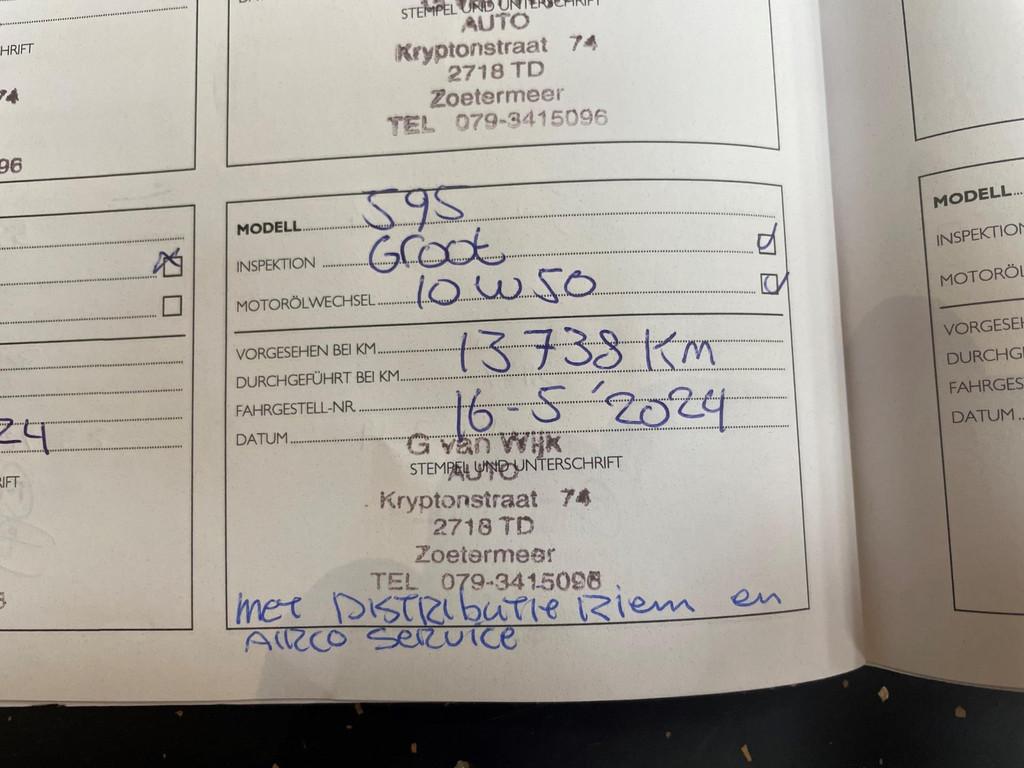 HRIFT
74
96
24
IFT
STEMPEL UND UNTERSCHRIFT
AUTO
Kryptonstraat 74
2718 TD
Zoetermeer
TEL 079-3415096
MODELL 595
INSPEKTION Groot
MOTORÖLWECHSEL 10W50
VORGESEHEN BEI KM 13738 Km
DURCHGEFÜHRT BEI KM
FAHRGESTELL-NR. 16-5 '2024
DATUM
G van Wijk
STEMPEL UND UNTERSCHRIFT
AUTO
Kryptonstraat 74
2718 TD
Zoetermeer
TEL 079-3415096
met DISTRIbutie Riem en
AIRCO SERVICE
MODELL
INSPEKTION
MOTORÖL
VORGESEH
DURCHG
FAHRGES
DATUM